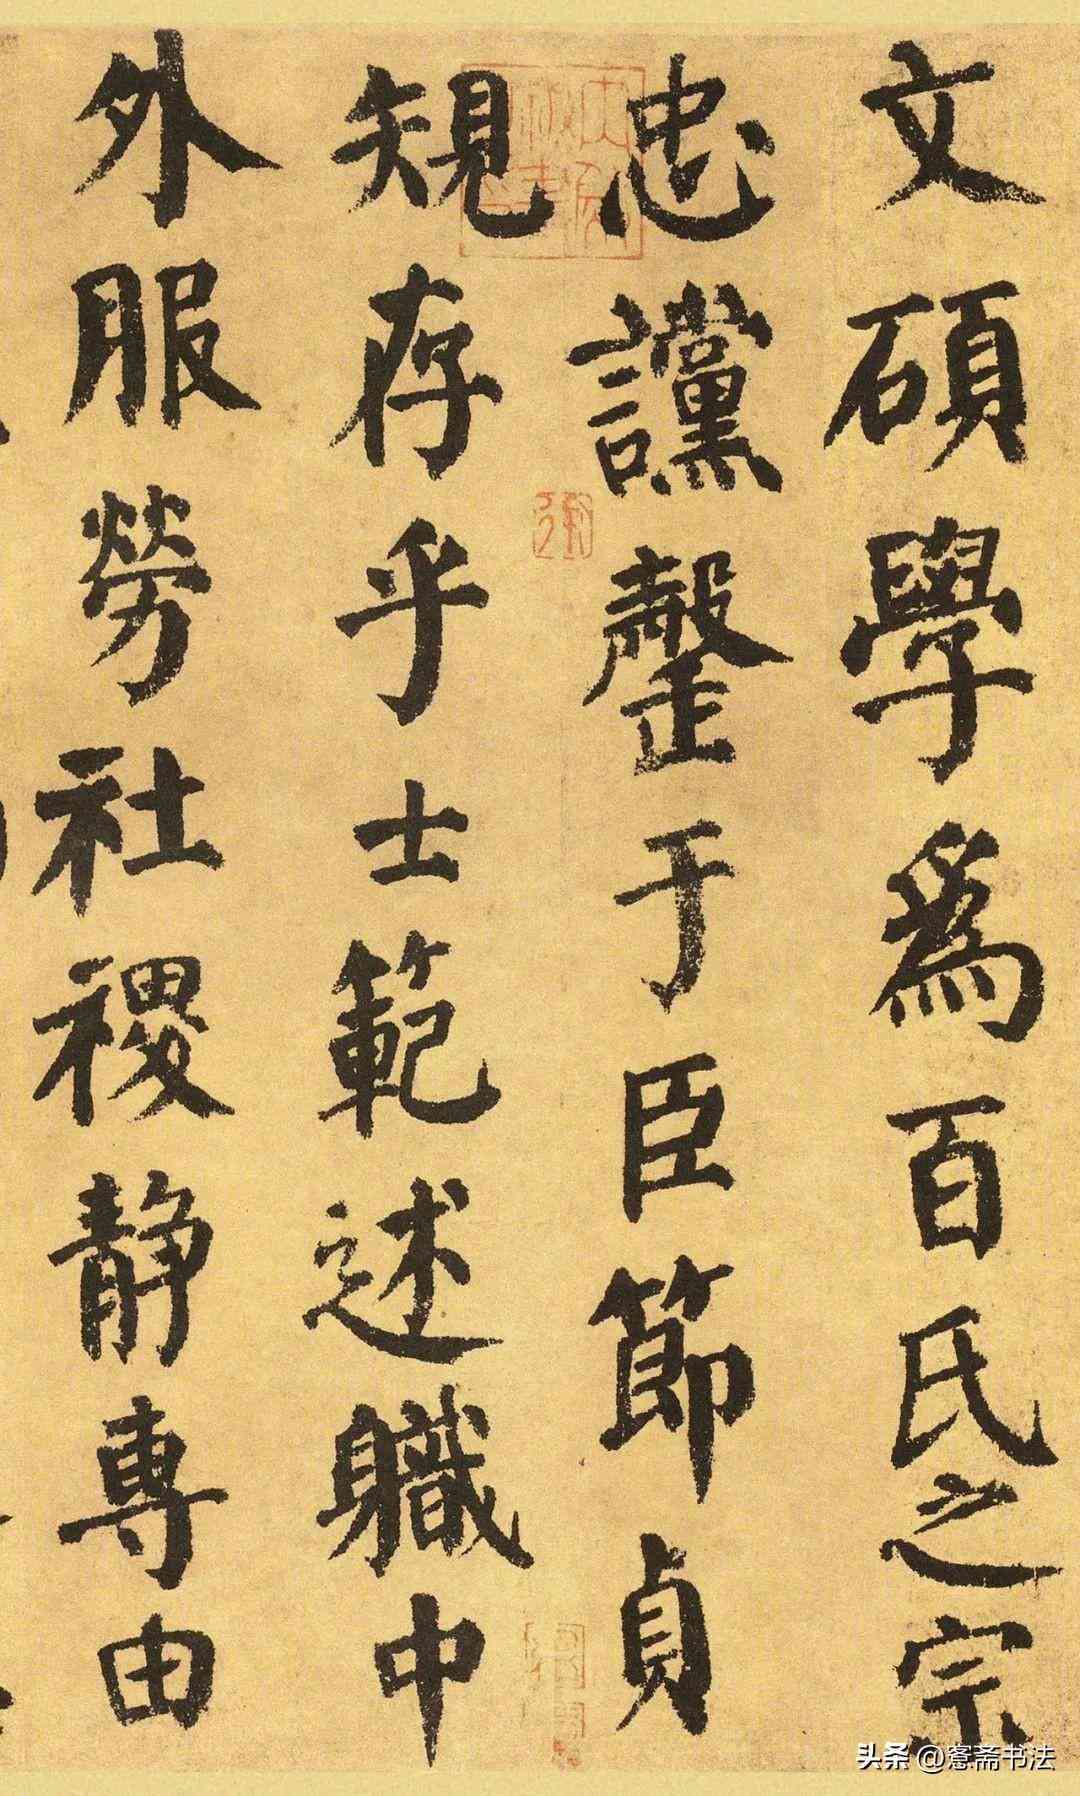 文碩學爲百氏之宗
忠讜罄于臣節貞
規存乎士範述職中
外服勞社稷静專由
头条 @窓斋书法